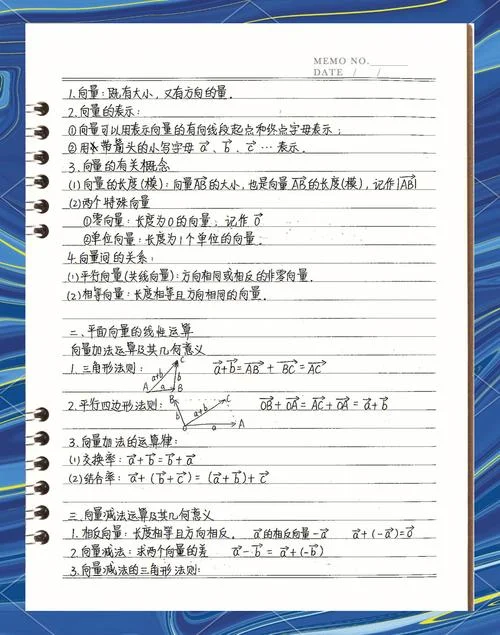 MEMO NO.
DATE / /
1.向量:既有大小,又有方向的量.
2.向量的表示:
①向量可以用表示向量的有向线段起点和终点字母表示;
②用带箭头的小写字母 a⃗、b⃗、c⃗…表示.
3.向量的有关概念
(1)向量的长度(模):向量AB⃗的大小,也是向量AB⃗的长度(模),记作|AB⃗|
(2)两个特殊向量
①零向量:长度为0的向量;记作 0⃗
②单位向量:长度为1个单位的向量.
4.向量间的关系:
(1)平行向量(共线向量):方向相同或相反的非零向量.
(2)相等向量:长度相等且方向相同的向量.
二、平面向量的线性运算
向量加法运算及其几何意义
1.三角形法则: A B C a b a+b a⃗+b⃗=AB⃗+BC⃗=AC⃗
2.平行四边形法则: B C O A a+b OB⃗+OA⃗=AC⃗+OA⃗=a⃗+b⃗
3.向量加法的运算律:
(1)交换率:a⃗+b⃗=b⃗+a⃗
(2)结合率:a⃗+(b⃗+c⃗)=(a⃗+b⃗)+c⃗
三、向量减法运算及其几何意义
1.相反向量:长度相等且方向相反. a⃗的相反向量-a⃗ a⃗+(-a⃗)=0⃗
2.向量减法:求两个向量的差 a⃗-b⃗=a⃗+(-b⃗)
3.向量减法的三角形法则: